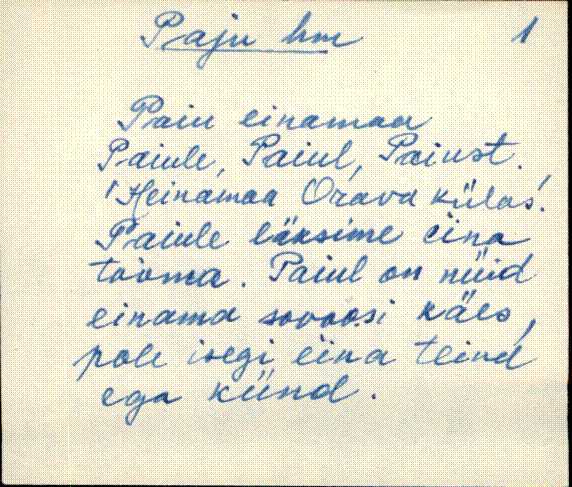 Paju hm 1
Paiu einamaa
Paiule, Paiul, Paiust.
'Heinamaa Orava külas'.
Paiule läksime eina
tooma. Paiul on nüid
einama sovoosi käes,
pole isegi eina teind
ega künd.